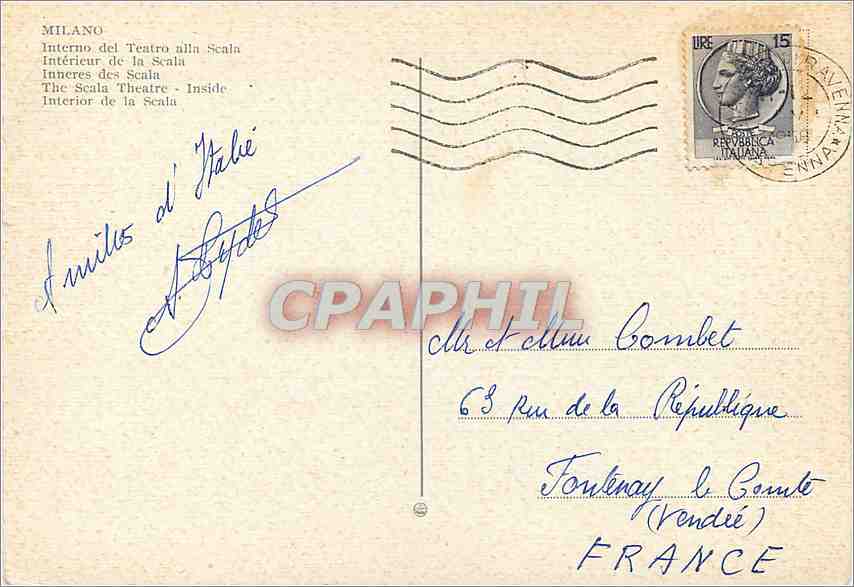 MILANO
Interno del Teatro alla Scala
Intérieur de la Scala
Inneres des Scala
The Scala Theatre - Inside
Interior de la Scala
LIRE 15
POSTE
REPVBBLICA
ITALIANA
RAVENNA
d'Italie
CPAPHIL
Mr et Mme Combet
63 Rue de la République
Fontenay le Comte
(Vendée)
FRANCE